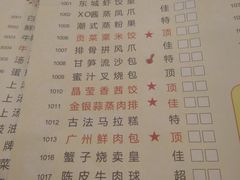 1001 东城虾饺皇 佳
1002 XO酱蒸凤爪 佳
1005 潮式蒸粉果 佳
1006 贡菜粟米饺 ★ 顶
1007 排骨拼凤爪 佳
1008 甘笋流沙包 特
1009 蜜汁叉烧包 佳
1010 晶莹香茜饺 ★ 顶
1011 金银蒜蒸肉排 ★ 特
1012 古法马拉糕 佳
1013 广州鲜肉包 ★ 顶
1016 蟹子烧卖皇 佳
1017 陈皮牛肉球 超